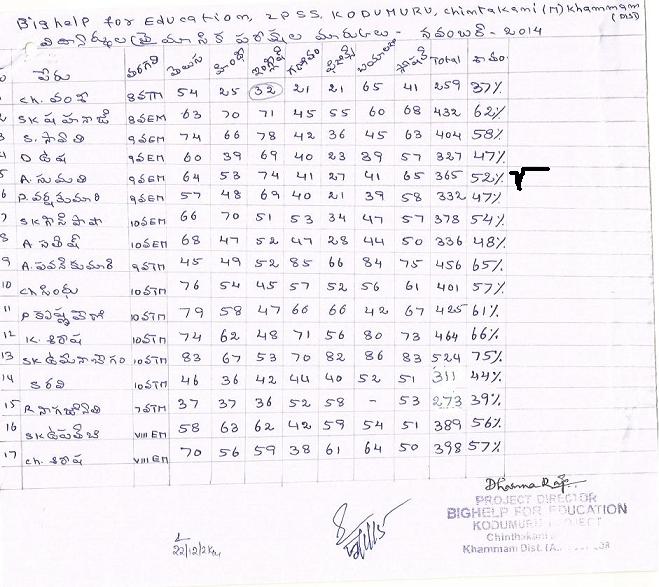 Bighelp for Education, ZPSS, KODUMURU, Chintakani (M) Khammam (Dist)
విద్యార్థుల త్రై మాసిక పరీక్షల మార్కులు - నవంబర్ - 2014
పేరు తరగతి తెలుగు హిందీ ఇంగ్లీష్ గణితం ఫిజిక్స్ బయాలజీ సోషల్ Total శాతం
1 Ch. వంశీ 8వTM 54 25 32 21 21 65 41 259 37%
2 SK షహనాజ్ 8వEM 63 70 71 45 55 60 68 432 62%
3 S. స్రావంతి 9వEM 74 66 78 42 36 45 63 404 58%
4 D ఉష 9వEM 60 39 69 40 23 39 57 327 47%
5 A. సుమతి 9వEM 64 53 74 41 27 41 65 365 52%
6 P. వర్ష కుమారి 9వEM 57 48 69 40 21 39 58 332 47%
7 SK 10వEM 66 70 51 53 34 47 57 378 54%
8 A 10వEM 68 47 52 47 28 44 50 336 48%
9 A. పవన్ కుమారి 9వTM 45 49 52 85 66 84 75 456 65%
10 Ch సింధు 10వTM 76 54 45 57 52 56 61 401 57%
11 P కృష్ణ 10వTM 79 58 47 66 66 42 67 425 61%
12 K. శిరీష 10వTM 74 62 48 71 56 80 73 464 66%
13 SK ఉమనా బేగం 10వTM 83 67 53 70 82 86 83 524 75%
14 10వTM 46 36 42 44 40 52 51 311 44%
15 R నాగజ్యోతి 7వTM 37 37 36 52 58 - 53 273 39%
16 SK VIII EM 58 63 62 42 59 54 51 389 56%
17 Ch. శిరీష VIII EM 70 56 59 38 61 64 50 398 57%
Dharma Raj.
PROJECT DIRECTOR
BIGHELP FOR EDUCATION
KODUMURU PROJECT
Chinthakani
Khammam Dist.
22/12/2014